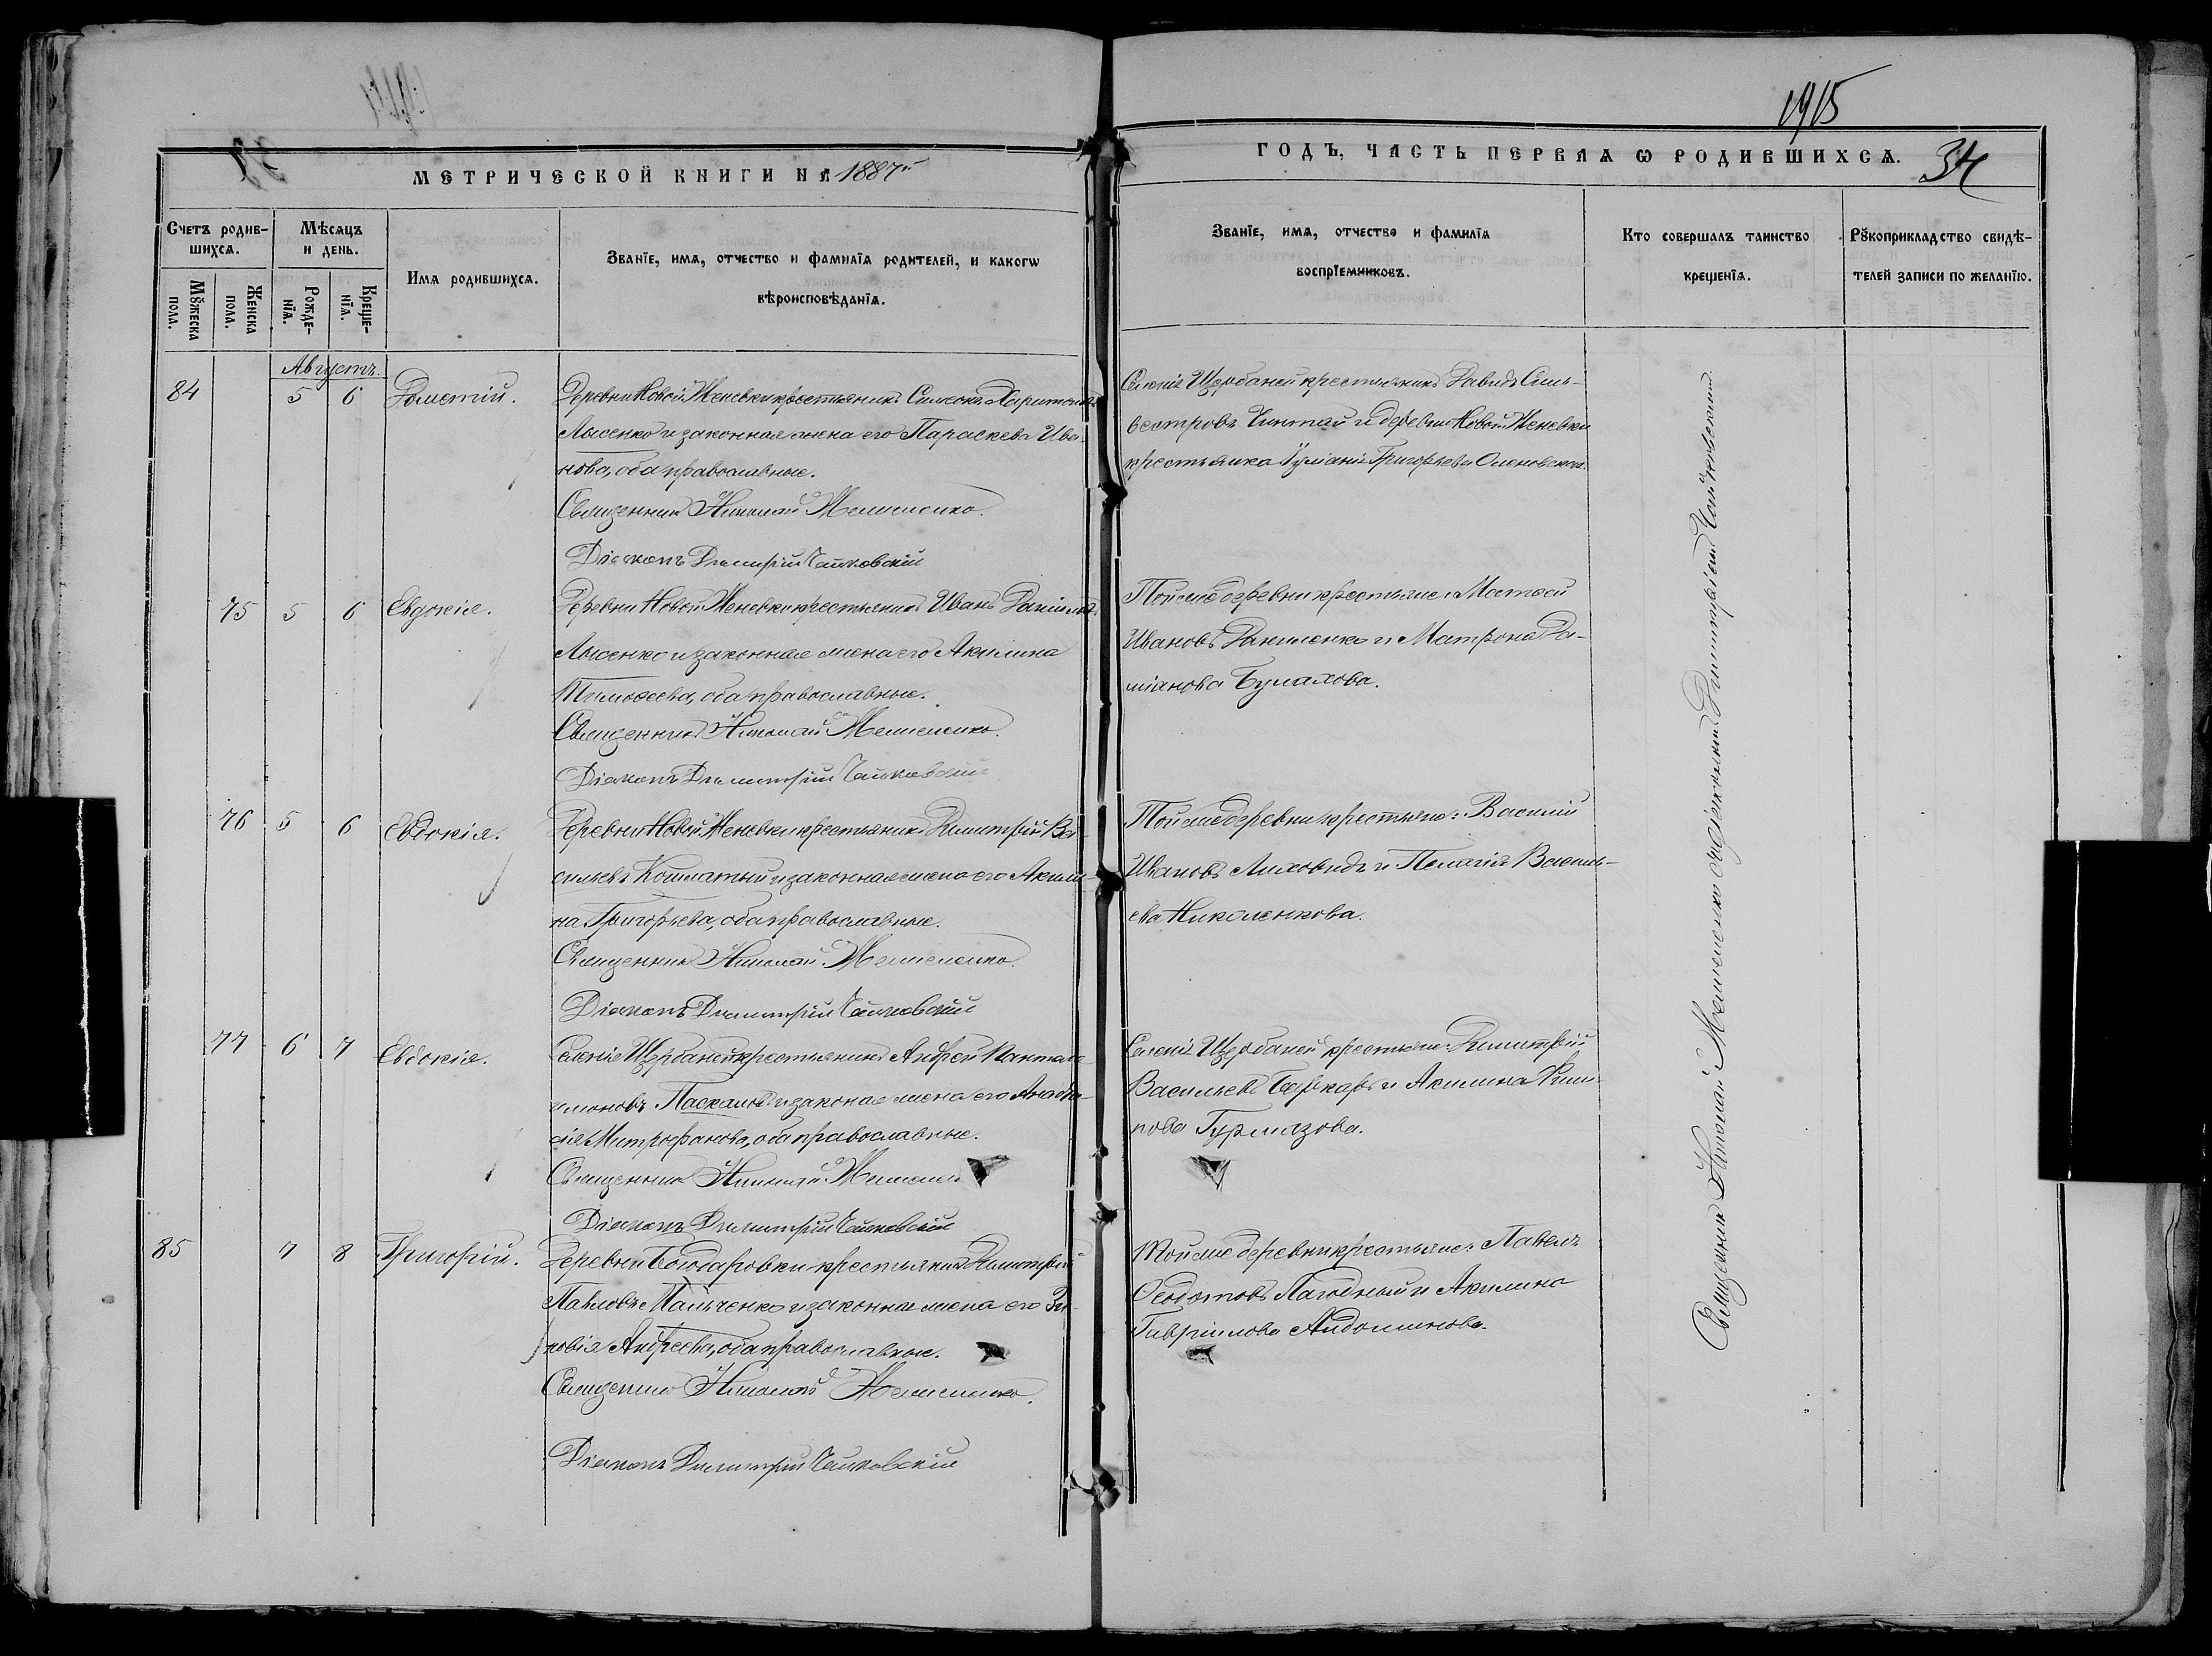 1915
34
МЕТРИЧЕСКОЙ КНИГИ НА 1887й
ГОДЪ, ЧАСТЬ ПЕРВАѦ Ѡ РОДИВШИХСѦ.
Счетъ родив-
шихсѧ.
Мꙋжеска
пола.
Женска
пола.
Мѣсѧцъ
и день.
Рожде-
нїѧ.
Креще-
нїѧ.
Имѧ родившихсѧ.
Званїе, имѧ, отчество и фамилїѧ родителей, и какогѡ
вѣроисповѣданїѧ.
Званїе, имѧ, отчество и фамилїѧ
воспрїемниковъ.
Кто совершалъ таинство
крещенїѧ.
Рꙋкоприкладство свидѣ-
телей записи по желанїю.
Августъ.
84
5
6
Дометій.
Деревни Новой Женевки крестьянинъ Симеонъ Харитоновъ
Лысенко и законная жена его Параскева Ива-
нова, оба православные.
Священникъ Николай Мелисенко.
Діаконъ Димитрій Чайковскій
Селенія Щербаней крестьянинъ Давидъ Силь-
вестровъ Чинтай и деревни Новой Женевки
крестьянка Іуліанія Григорьева Оленовская.
75
5
6
Евдокія.
Деревни Новой Женевки крестьянинъ Иванъ Даніиловъ
Лысенко и законная жена его Акилина
Тимоѳеева, оба православные.
Священникъ Николай Мелисенко.
Діаконъ Димитрій Чайковскій
Той же деревни крестьяне: Матѳей
Ивановъ Даниленко и Матрона Да-
міанова Булахова.
76
5
6
Евдокія.
Деревни Новой Женевки крестьянинъ Димитрій Ва-
сильевъ Кошлатый и законная жена его Акили-
на Григорьева, оба православные.
Священникъ Николай Мелисенко.
Діаконъ Димитрій Чайковскій
Той же деревни крестьяне: Василій
Ивановъ Лиховидъ и Пелагія Василь-
ева Николенкова.
77
6
7
Евдокія.
Селенія Щербаней крестьянинъ Андрей Пантеле-
имоновъ Паскаловъ и законая жена его Анаста-
сія Митрофанова, оба православные.
Священникъ Николай
Діаконъ Димитрій Чайковскій
Селенія Щербаней крестьяне: Димитрій
Васильевъ Беркаръ и Акилина Фили-
пова Гурмазова.
85
7
8
Григорій.
Деревни Богодаровки крестьянинъ Димитрій
Павловъ Пальченко и законная жена его Зи-
новія Андреева, оба православные.
Священникъ Николай Мелисенко.
Діаконъ Димитрій Чайковскій
Той же деревни крестьяне: Павелъ
Ѳеодотовъ Лагодный и Акилина
Гавріилова Авдошинова.
Священникъ Николай Мелисенко съ діакономъ Димитріемъ Чайковскимъ.